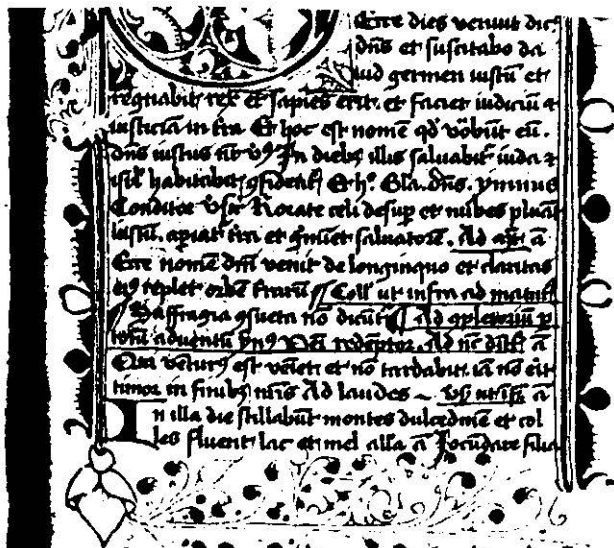 Ecce dies veniut dic
dn̄s et suscitabo da
uid germen iustū et
regnabit rex et sapiēs erit. et faciet iudiciū ⁊
iusticiā in tr̄a Et hoc est nomē qd̄ vocābūt eū.
dn̄s iustus nr̄ vꝰ In diebꝫ illis saluabit᷑ iuda ⁊
isrl̄ habitabit ꝯfident᷑ Et hᵒ. Gla. dn̄s. ymnus
Conditor Vsic̄ Rorate celi desuꝑ et nubes pluāt
iustū. aꝑiat᷑ tr̄a et gͥminet saluatorē. Ad
Ecce nomē dn̄i venit de longinquo et claritas
eiꝰ replet orbē trarū Coll̄ ut infra ad
Suffragia ꝯsueta nō dicūt᷑ Ad ꝯpletoriū ꝑ
totū aduentū redēptor. Ad a᷑
Qui ventūrꝰ est veniet et nō tardabit. iā nō erit
timor in finibꝫ nr̄is Ad laudes a᷑
In illa die stillabūt montes dulcedinē et col
les fluent lac et mel alla a᷑ Jocūdare filia